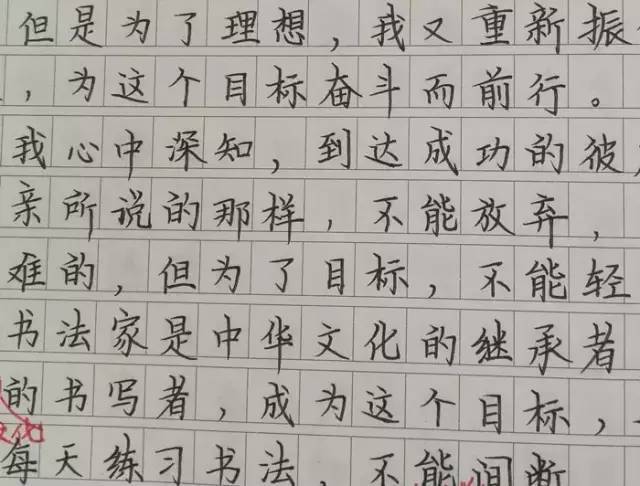 但是为了理想，我又重新振
，为这个目标奋斗而前行。
我心中深知，到达成功的彼
亲所说的那样，不能放弃，
难的，但为了目标，不能轻
书法家是中华文化的继承者
的书写者，成为这个目标，
文化
每天练习书法，不能间断